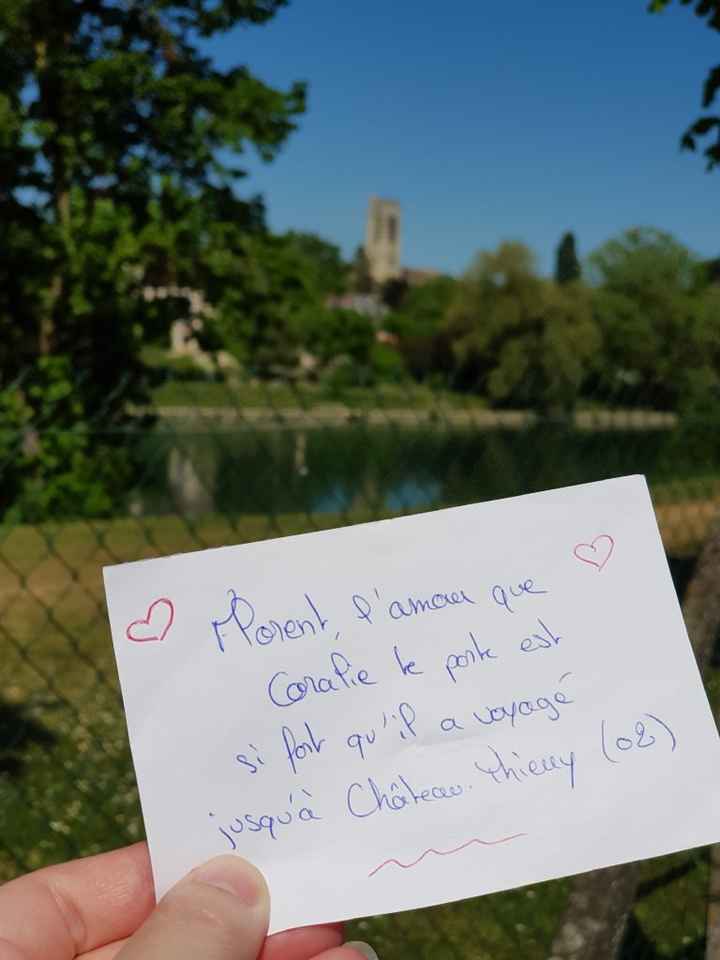 Florent, l'amour que
Coralie te porte est
si fort qu'il a voyagé
jusqu'à Château-Thierry (02)